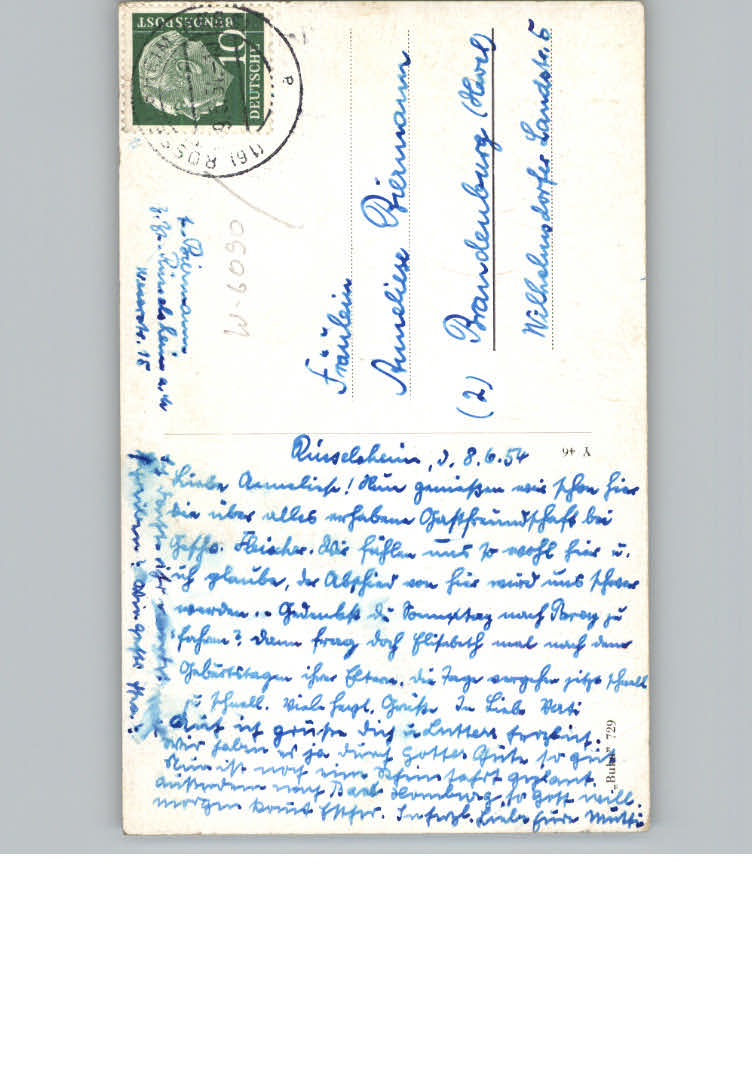 DEUTSCHE
BUNDESPOST
10
(16) RÜSS
a
Biermann
z. Zt. Rüsselsheim a/M
W-6090
Fräulein
Anneliese Biermann
(2) Brandenburg (Havel)
Wilhelmsdorfer Landstr. 5
Y 46
Rüsselsheim, d. 8.6.54
Liebe Anneliese! Nun genießen wir schon hier
die über alles erhabene Gastfreundschaft bei
Geschw. Fleischer. Wir fühlen uns so wohl hier u.
ich glaube, der Abschied von hier wird uns schwer
werden. Gedenkst du Sonnstag nach Burg zu
fahren? Dann frag doch Elisabeth mal nach dem
Geburtstagen ihrer Eltern. Die Tage vergehen jetzt schnell
zu schnell. Viele herzl. Grüße In Liebe Vati
Auch ich grüße dich u. herzlich.
Wir haben es ja durch Gottes Güte so gut
Nun ist noch eine Rheinfahrt geplant.
außerdem nach Bad Homburg, so Gott will.
morgen kommt Esther. In herzl. Liebe Eure Mutti
729